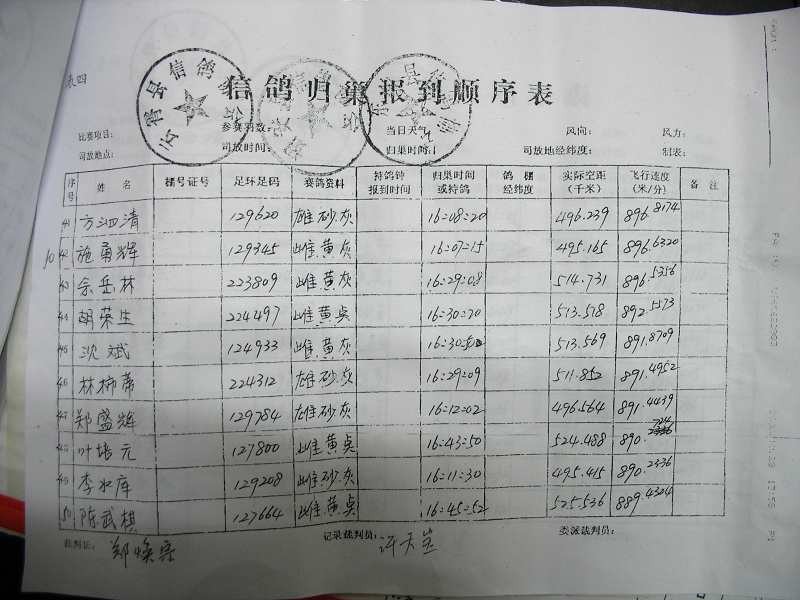 表四
信鸽归巢报到顺序表
比赛项目: 参赛羽数: 当日天气: 风向: 风力:
司放地点: 司放时间: 归巢时间: 司放地经纬度: 制表:
序号 姓名 棚号证号 足环足码 赛鸽资料 持鸽钟报到时间 归巢时间或持鸽 鸽棚经纬度 实际空距(千米) 飞行速度(米/分) 备注
41 方泗清 129620 雄砂灰 16:08:20 496.239 896.8174
42 施勇辉 129345 雌黄灰 16:07:15 495.165 896.6320
43 余岳林 223809 雌黄灰 16:29:08 514.731 896.5356
44 胡荣生 224497 雌黄 16:30:20 513.518 892.5573
45 沈斌 124933 雌黄灰 513.569 891.8709
46 林 224312 雄砂灰 16:29:09 511.852 891.4952
47 郑盛辉 129784 雄砂灰 16:12:02 496.564 891.4439
48 叶培元 127800 雌黄 16:43:50 524.488 890.
49 李 129208 雌砂灰 16:11:30 495.415 890.2336
50 陈武棋 127664 雌黄 16:45:52 525.536 889.4324
裁判证: 郑 记录裁判员: 许天 委派裁判员: